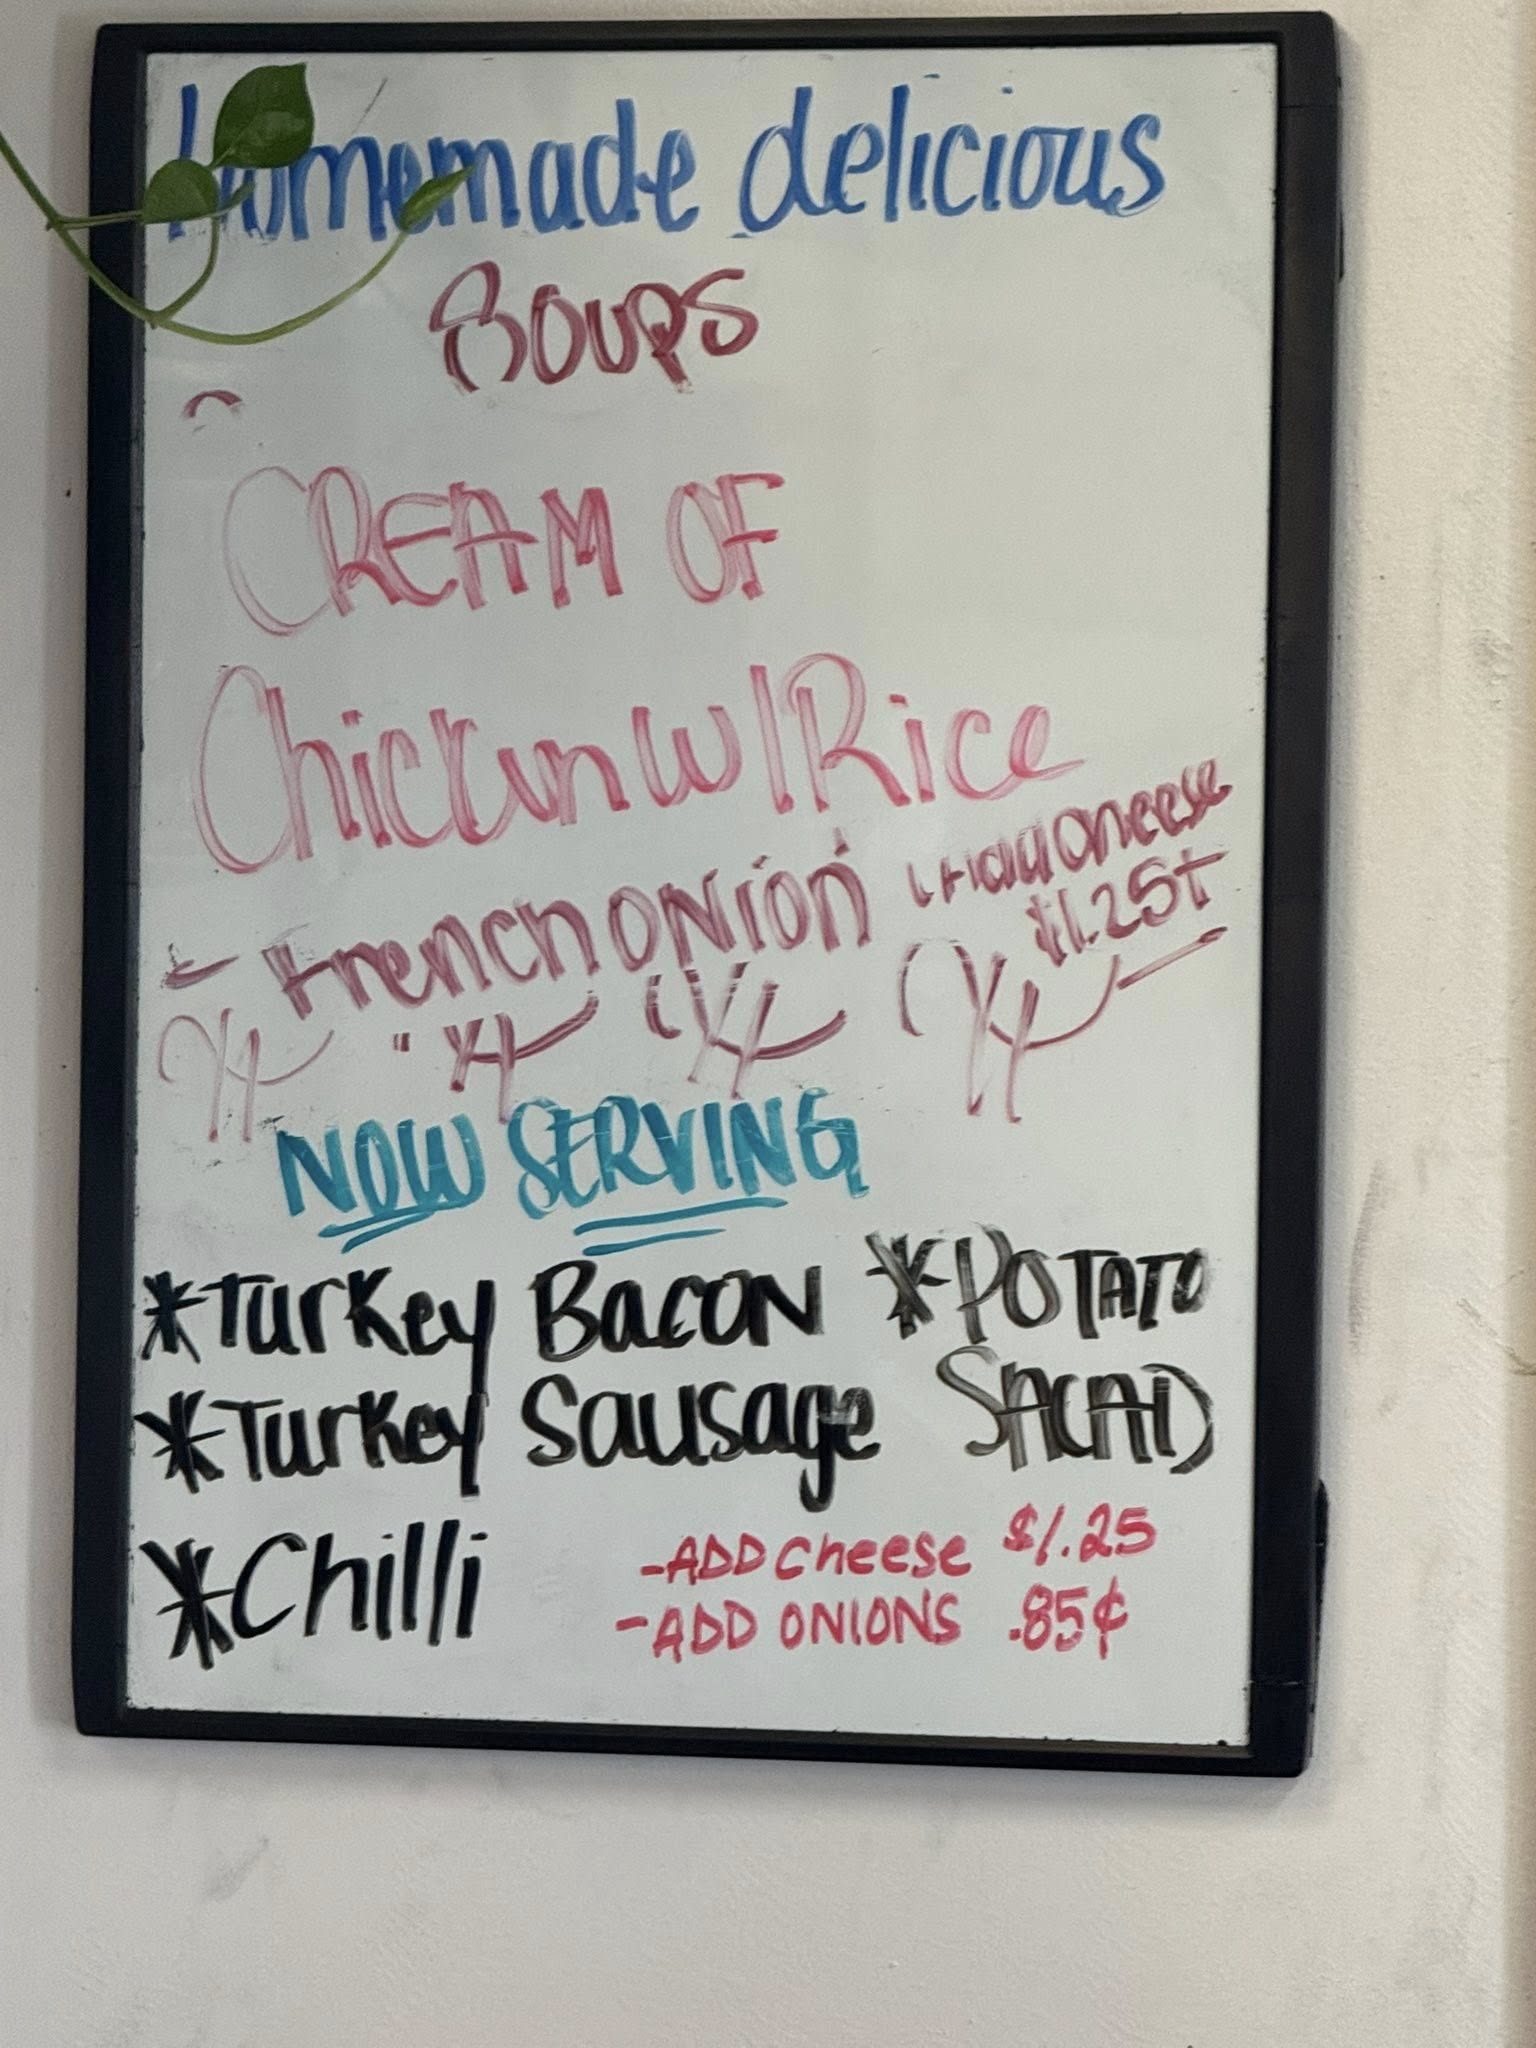 Homemade delicious
Soups
CREAM OF
Chicken W/Rice
- French ONiON
add Cheese
$1.25+
NOW SERVING
*Turkey Bacon
*Turkey Sausage
*POTATO
SALAD
*Chilli
-ADD Cheese $1.25
-ADD ONIONS .85¢